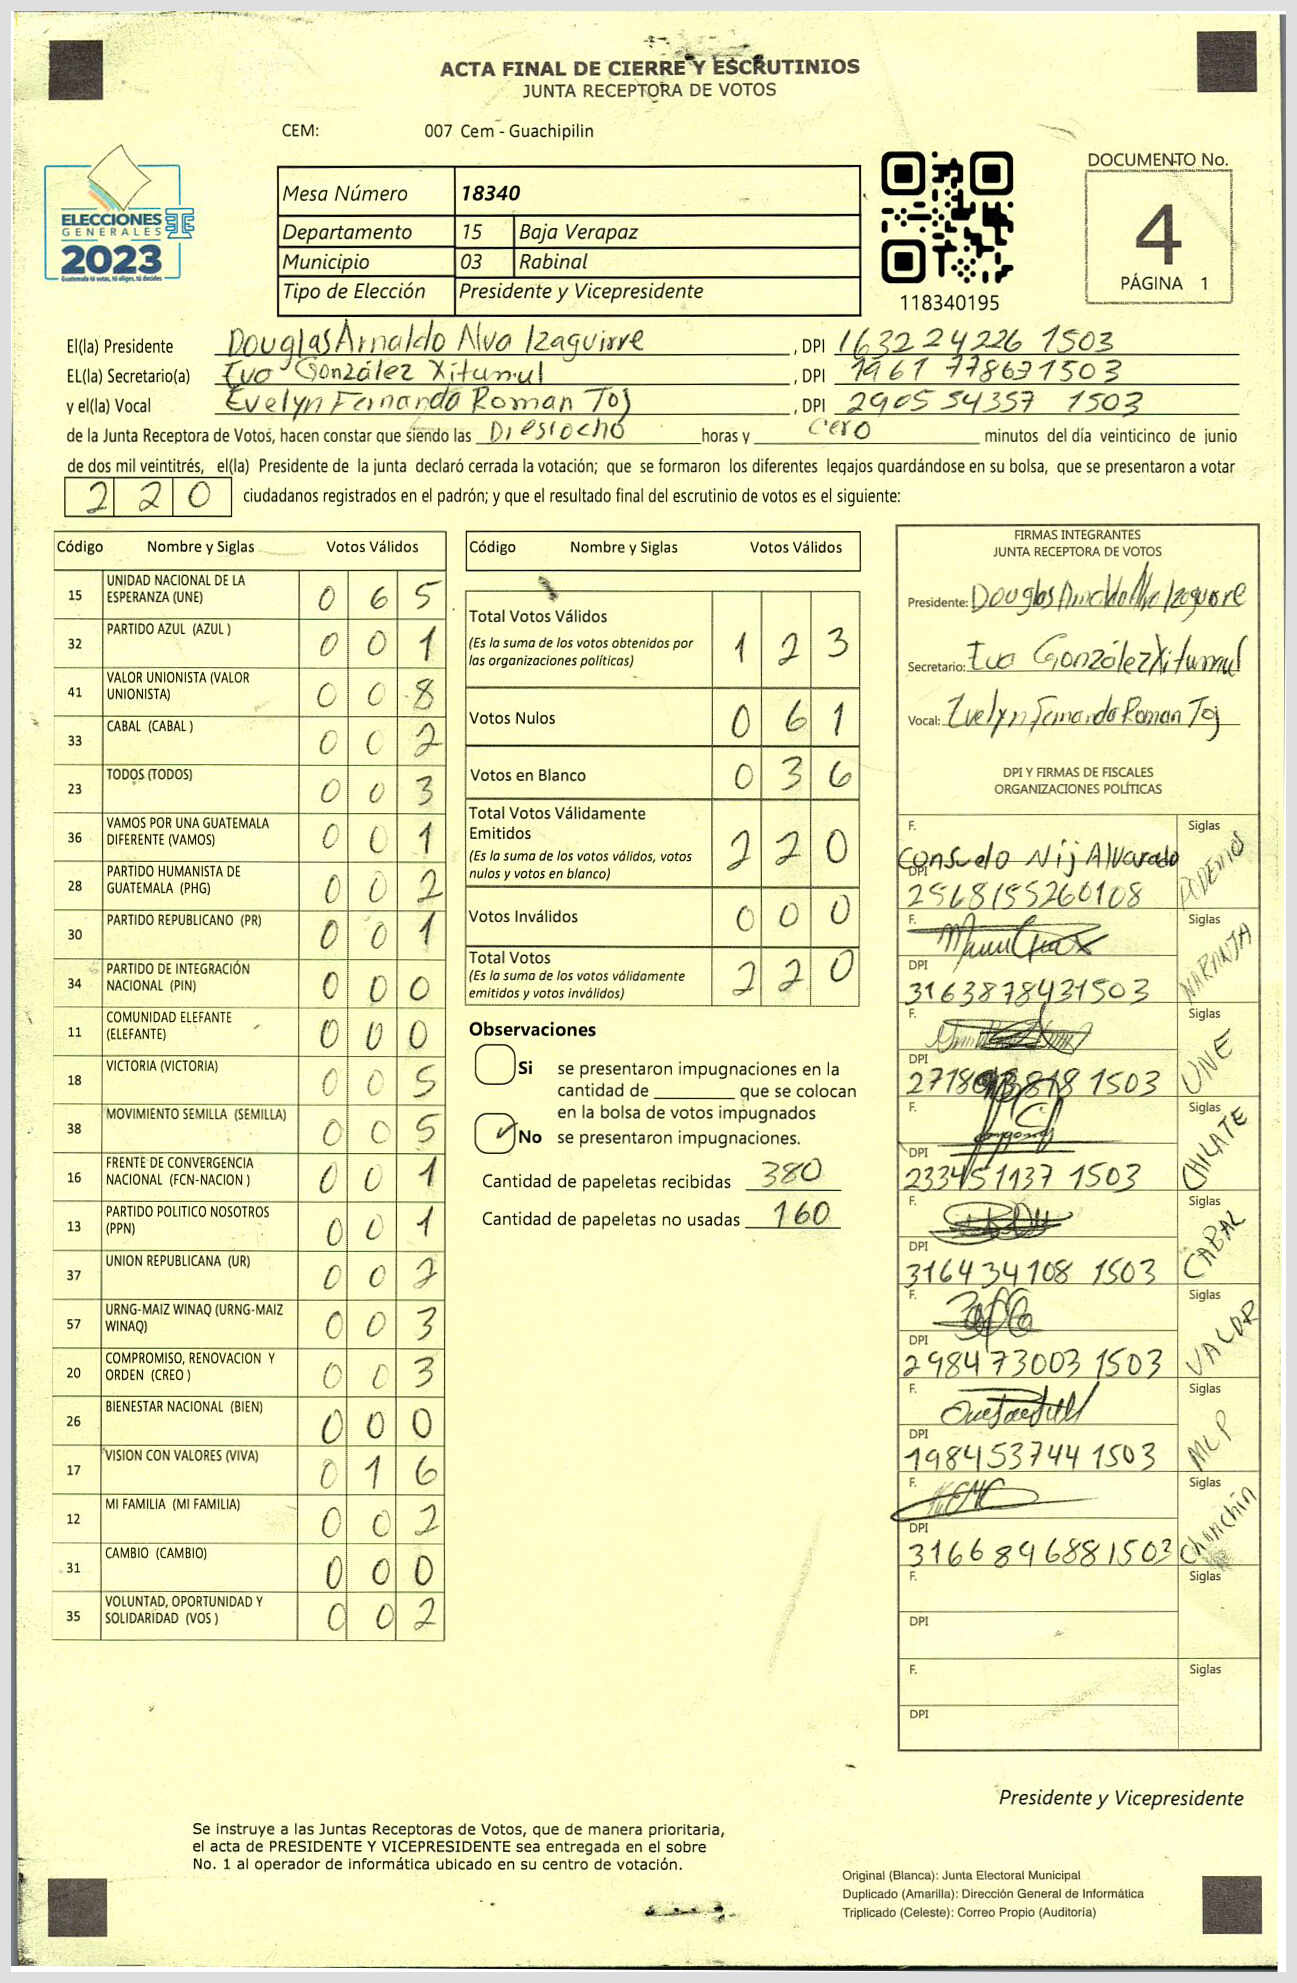 ACTA FINAL DE CIERRE Y ESCRUTINIOS
JUNTA RECEPTORA DE VOTOS
CEM: 007 Cem - Guachipilin
ELECCIONES
GENERALES
2023
Guatemala tú votas, tú eliges, tú decides
Mesa Número 18340
Departamento 15 Baja Verapaz
Municipio 03 Rabinal
Tipo de Elección Presidente y Vicepresidente
118340195
DOCUMENTO No.
4
PÁGINA 1
El(la) Presidente Douglas Arnaldo Alva Izaguirre , DPI 1632 24226 1503
EL(la) Secretario(a) Ivo González Xitumul , DPI 1961 778631503
y el(la) Vocal Evelyn Fernanda Roman Toj , DPI 2905 54357 1503
de la Junta Receptora de Votos, hacen constar que siendo las Diesiocho horas y cero minutos del día veinticinco de junio
de dos mil veintitrés, el(la) Presidente de la junta declaró cerrada la votación; que se formaron los diferentes legajos quardándose en su bolsa, que se presentaron a votar
220 ciudadanos registrados en el padrón; y que el resultado final del escrutinio de votos es el siguiente:
Código Nombre y Siglas Votos Válidos
15 UNIDAD NACIONAL DE LA ESPERANZA (UNE) 0 6 5
32 PARTIDO AZUL (AZUL ) 0 0 1
41 VALOR UNIONISTA (VALOR UNIONISTA) 0 0 8
33 CABAL (CABAL ) 0 0 2
23 TODOS (TODOS) 0 0 3
36 VAMOS POR UNA GUATEMALA DIFERENTE (VAMOS) 0 0 1
28 PARTIDO HUMANISTA DE GUATEMALA (PHG) 0 0 2
30 PARTIDO REPUBLICANO (PR) 0 0 1
34 PARTIDO DE INTEGRACIÓN NACIONAL (PIN) 0 0 0
11 COMUNIDAD ELEFANTE (ELEFANTE) 0 0 0
18 VICTORIA (VICTORIA) 0 0 5
38 MOVIMIENTO SEMILLA (SEMILLA) 0 0 5
16 FRENTE DE CONVERGENCIA NACIONAL (FCN-NACION ) 0 0 1
13 PARTIDO POLITICO NOSOTROS (PPN) 0 0 1
37 UNION REPUBLICANA (UR) 0 0 2
57 URNG-MAIZ WINAQ (URNG-MAIZ WINAQ) 0 0 3
20 COMPROMISO, RENOVACION Y ORDEN (CREO ) 0 0 3
26 BIENESTAR NACIONAL (BIEN) 0 0 0
17 VISION CON VALORES (VIVA) 0 1 6
12 MI FAMILIA (MI FAMILIA) 0 0 2
31 CAMBIO (CAMBIO) 0 0 0
35 VOLUNTAD, OPORTUNIDAD Y SOLIDARIDAD (VOS ) 0 0 2
Código Nombre y Siglas Votos Válidos
Total Votos Válidos 1 2 3
(Es la suma de los votos obtenidos por
las organizaciones políticas)
Votos Nulos 0 6 1
Votos en Blanco 0 3 6
Total Votos Válidamente
Emitidos 2 2 0
(Es la suma de los votos válidos, votos
nulos y votos en blanco)
Votos Inválidos 0 0 0
Total Votos 2 2 0
(Es la suma de los votos válidamente
emitidos y votos inválidos)
Observaciones
Si se presentaron impugnaciones en la
cantidad de ________ que se colocan
en la bolsa de votos impugnados
No se presentaron impugnaciones.
Cantidad de papeletas recibidas 380
Cantidad de papeletas no usadas 160
FIRMAS INTEGRANTES
JUNTA RECEPTORA DE VOTOS
Presidente: Douglas Arnaldo Alva Izaguirre
Secretario: Ivo González Xitumul
Vocal: Evelyn Fernanda Roman Toj
DPI Y FIRMAS DE FISCALES
ORGANIZACIONES POLÍTICAS
F. Consuelo Nij Alvarado Siglas PODEMOS
DPI 2568155260108
F. Siglas NARANJA
DPI 3163878431503
F. Siglas UNE
DPI 1503
F. Siglas CHILATE
DPI 233451137 1503
F. Siglas CABAL
DPI 316434108 1503
F. Siglas VALOR
DPI 298473003 1503
F. Siglas MLP
DPI 198453744 1503
F. Siglas Chanchin
DPI 3166896881503
F. Siglas
DPI
F. Siglas
DPI
Presidente y Vicepresidente
Se instruye a las Juntas Receptoras de Votos, que de manera prioritaria,
el acta de PRESIDENTE Y VICEPRESIDENTE sea entregada en el sobre
No. 1 al operador de informática ubicado en su centro de votación.
Original (Blanca): Junta Electoral Municipal
Duplicado (Amarilla): Dirección General de Informática
Triplicado (Celeste): Correo Propio (Auditoría)